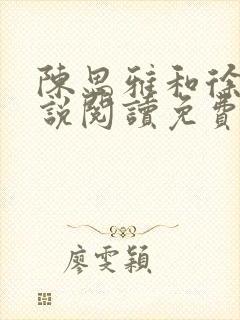 陳思雅和徐
說閱讀免費
廖雯穎